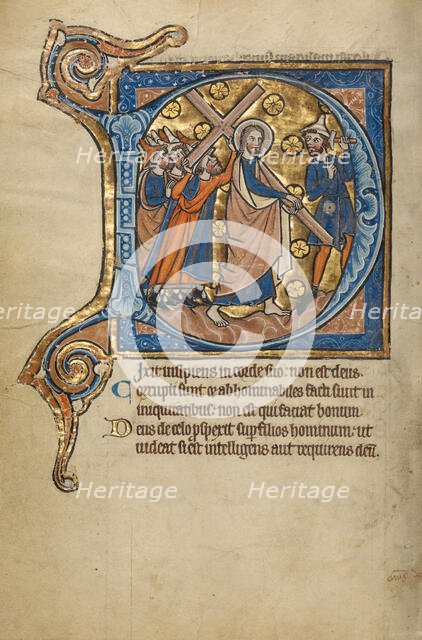 Heritage Heritage
Heritage Heritage
D
ixit insipiens in corde suo: non est deus.
Corrupti sunt et abhominabiles facti sunt in
iniquitatibus: non est qui faciat bonum.
Deus de celo ꝓspexit sup filios hominum: ut
videat si est intelligens aut requirens deū.
Heritage Heritage